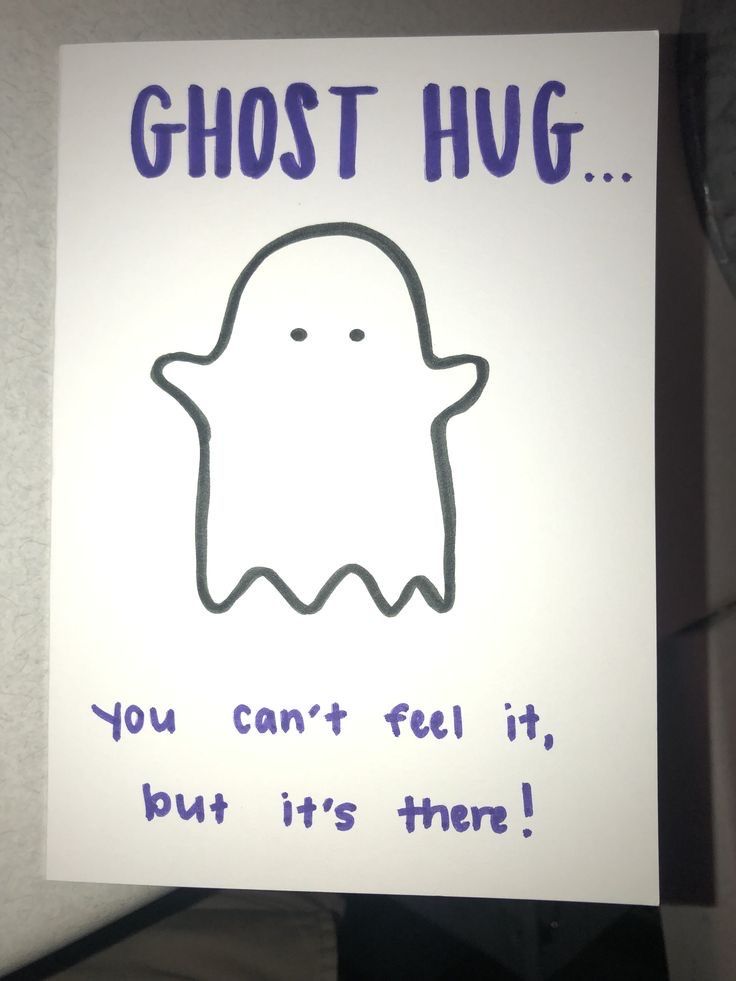 GHOST HUG...
you can't feel it,
but it's there!